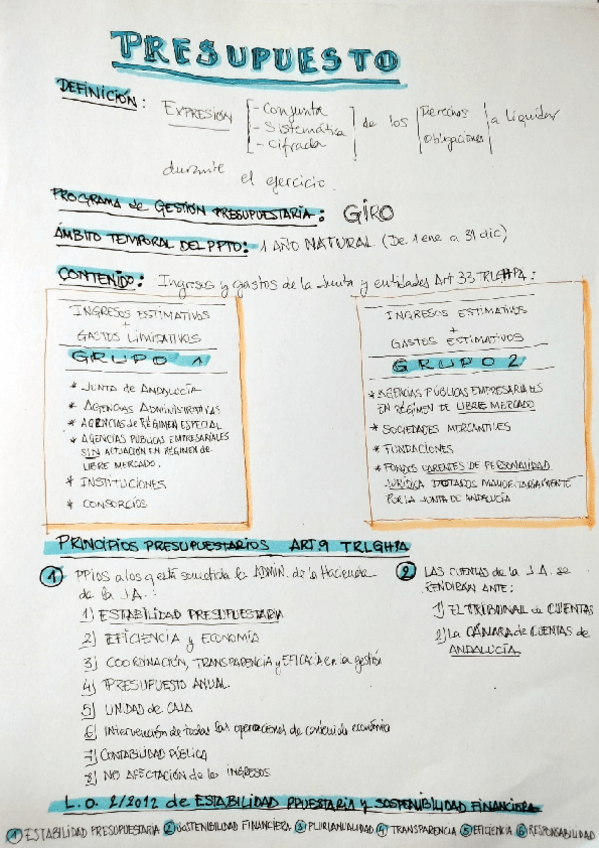 PRESUPUESTO
DEFINICIÓN: EXPRESIÓN - Conjunta - Sistemática - Cifrada de los Derechos Obligaciones a liquidar
durante el ejercicio.
PROGRAMA de GESTIÓN PRESUPUESTARIA: GIRO
ÁMBITO TEMPORAL DEL PPTO: 1 AÑO NATURAL (De 1 ene a 31 dic)
CONTENIDO: Ingresos y gastos de la Junta y entidades Art 33 TRLGHPA:
INGRESOS ESTIMATIVOS
+
GASTOS LIMITATIVOS
GRUPO 1
* JUNTA de ANDALUCÍA
* AGENCIAS ADMINISTRATIVAS
* AGENCIAS de RÉGIMEN ESPECIAL
* AGENCIAS PÚBLICAS EMPRESARIALES
SIN ACTUACIÓN EN RÉGIMEN de
LIBRE MERCADO.
* INSTITUCIONES
* CONSORCIOS
INGRESOS ESTIMATIVOS
+
GASTOS ESTIMATIVOS
GRUPO 2
* AGENCIAS PÚBLICAS EMPRESARIALES
EN RÉGIMEN DE LIBRE MERCADO
* SOCIEDADES MERCANTILES
* FUNDACIONES
* FONDOS CARENTES DE PERSONALIDAD
JURÍDICA DOTADOS MAYORITARIAMENTE
POR LA JUNTA DE ANDALUCÍA
PRINCIPIOS PRESUPUESTARIOS ART 9 TRLGHPA
1 PPIOS a los q está sometida la ADMIN. de la Hacienda
de la J.A.:
1) ESTABILIDAD PRESUPUESTARIA
2) EFICIENCIA y ECONOMÍA
3) COORDINACIÓN, TRANSPARENCIA y EFICACIA en la gestión
4) PRESUPUESTO ANUAL
5) UNIDAD de CAJA
6) Intervención de todas las operaciones de contenido económico
7) CONTABILIDAD PÚBLICA
8) NO AFECTACIÓN de los INGRESOS
2 LAS CUENTAS de la J.A. se
RENDIRÁN ANTE:
1) EL TRIBUNAL de CUENTAS
2) La CÁMARA de CUENTAS de
ANDALUCÍA
L.O. 2/2012 de ESTABILIDAD PPUESTARIA y SOSTENIBILIDAD FINANCIERA
1 ESTABILIDAD PRESUPUESTARIA 2 SOSTENIBILIDAD FINANCIERA 3 PLURIANUALIDAD 4 TRANSPARENCIA 5 EFICIENCIA 6 RESPONSABILIDAD